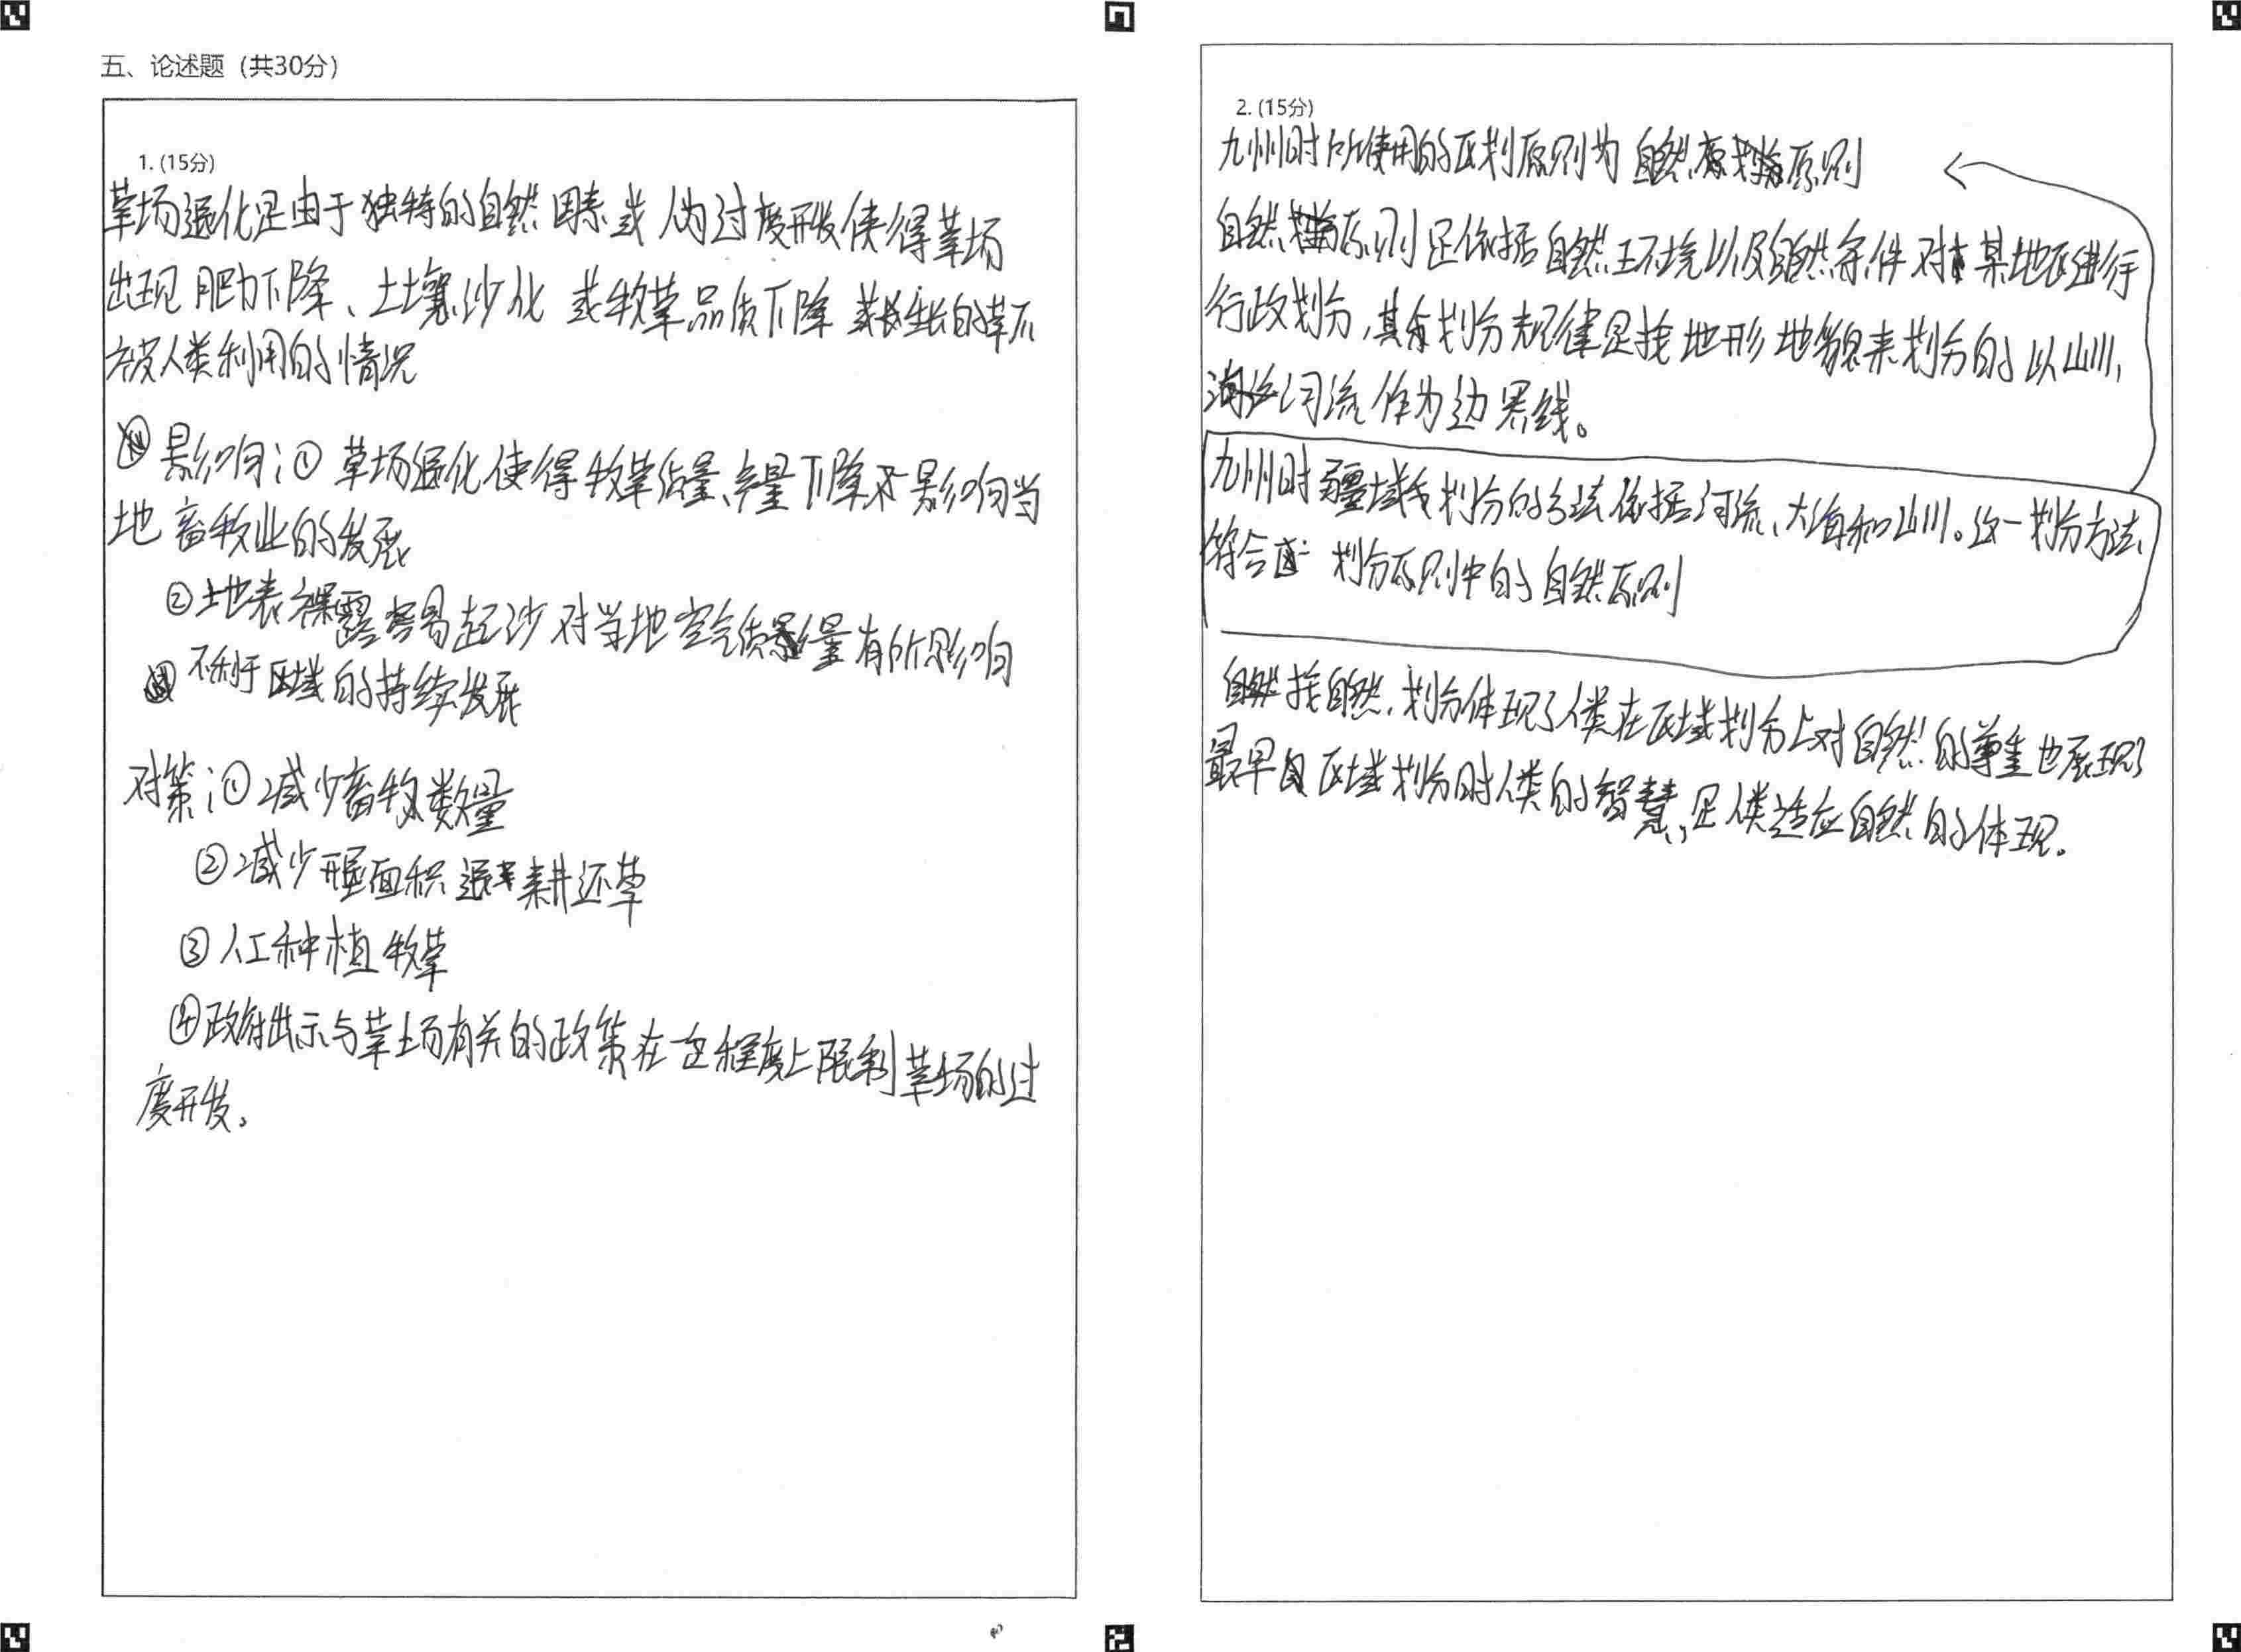 五、论述题（共30分）
1. (15分)
草场退化是由于独特的自然因素或人为过度开发使得草场
出现肥力下降、土壤沙化或牧草品质下降或生长的草不
被人类利用的情况
影响：① 草场退化使得牧草质量、产量下降不影响当
地畜牧业的发展
②地表裸露容易起沙对当地空气质量有所影响
不利于区域的持续发展
对策：①减少畜牧数量
②减少开垦面积 退耕还草
③人工种植牧草
④政府出示与草场有关的政策在一定程度上限制草场的过
度开发。
2. (15分)
九州时所使用的区划原则为自然原则
自然原则是依据自然环境以及自然条件对某地区进行
行政划分，其划分规律是按地形地貌来划分的以山川，
河流作为边界线。
九州时疆域划分的方法依据河流、大海和山川。这一划分方法
符合 划分原则中的自然原则
按自然划分体现了人类在区域划分上对自然的尊重也展现了
最早区域划分时人类的智慧，是人类适应自然的体现。